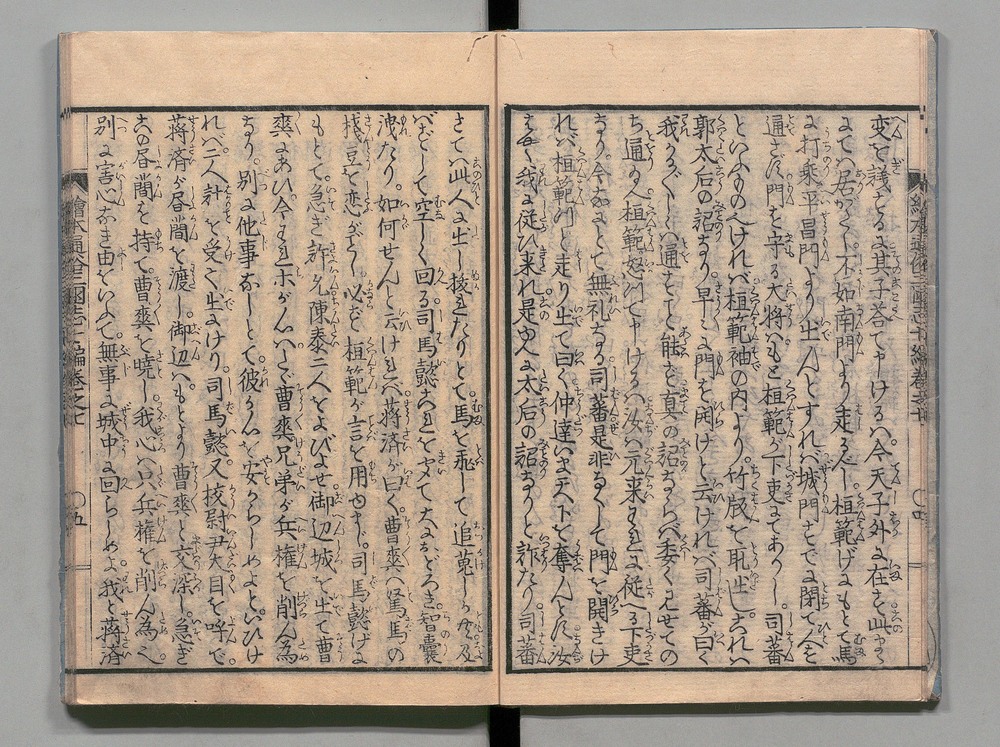 変を議するに其子答て申けるハ今天子外に在を此まゝ
にてハ居がたし不如南門より走らん桓範げにもとて馬
に打乗平昌門より出んとすれバ城門すでに閉て人を
通さず門を守る大将ハもと桓範が下吏にてありし司蕃
といふものへけれバ桓範袖の内より竹版を取出しこれハ
郭太后の詔なり早々に門を開けと云けれバ司蕃が曰く
我かるく〴〵しくハ通さじと能々真の詔ならバ委く見せての
ち通さん桓範怒て申けるハ汝ハ元来我に従へる下吏
なり今なにとて無礼なる司蕃是非なくして門を開きけ
れバ桓範つと走り出て曰く仲達いま天下を奪んとす汝
はやく我に従ひ来れ是ゆへに太后の詔なりと詐たり司蕃
さてハ此人に出し抜れたりとて馬を飛して追蒐しが及
べずして空しく回る司馬懿これをきいて大におどろき智嚢
洩たり。如何せんと云けれバ蒋済が曰く曹爽ハ駑馬の
桟豆を恋がごとし必ず桓範が言を用ゆまじ。司馬懿げに
もとて急ぎ許允陳泰二人をよびよせ御辺城を出て曹
爽にあひ今われホがんハしく曹爽兄弟が兵権を削ん為
なり。別に他事なしとて彼が心を安からしめよといひけ
れバ二人計を受て出にけり司馬懿又校尉尹大目を呼で。
蒋済が書簡を渡し御辺ハもとより曹爽と交深し急ぎ
この書簡を持て。曹爽を暁し我心ハ只兵権を削ん為へ
別に害心なき由をいふて。無事に城中に回らしめよ我と蒋済
繪本通俗三國志七編巻之七
〇五
〇四